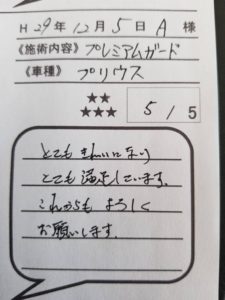 H29年12月5日 A 様
《施術内容》プレミアムガード
《車種》プリウス
★★
★★★
5/5
とてもきれいになり
とても満足しています。
これからもよろしく
お願いします。